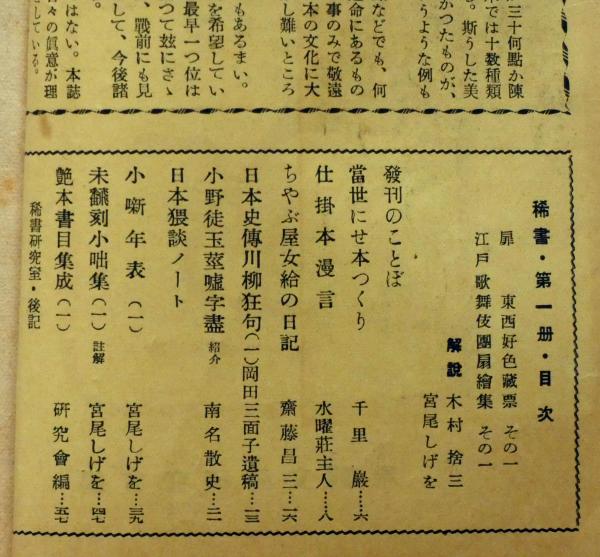 三十何點か陳
では十数種類
。斯うした美
かつたものが、
うような例も
などでも、何
命にあるもの
事のみで敬遠
本の文化に大
し難いところ
もあるまい。
を希望してい
最早一つ位は
つて玆にさゝ
、戰前にも見
して、今後諸
はない。本誌
々の眞意が理
としている。
稀書・第一册・目次
扉 東西好色藏票 その一
江戸歌舞伎團扇繪集 その一
解說 木村捨三
宮尾しげを
發刊のことば
當世にせ本つくり 千里巖……六
仕掛本漫言 水曜莊主人……八
ちやぶ屋女給の日記 齋藤昌三…一六
日本史傳川柳狂句(一)岡田三面子遺稿…一三
小野徒玉莖嘘字盡 紹介 南名散史…二一
日本猥談ノート
小噺年表(一) 宮尾しげを…三九
未飜刻小咄集(一) 註解 宮尾しげを…四七
艶本書目集成(一) 研究會編…五七
稀書研究室・後記